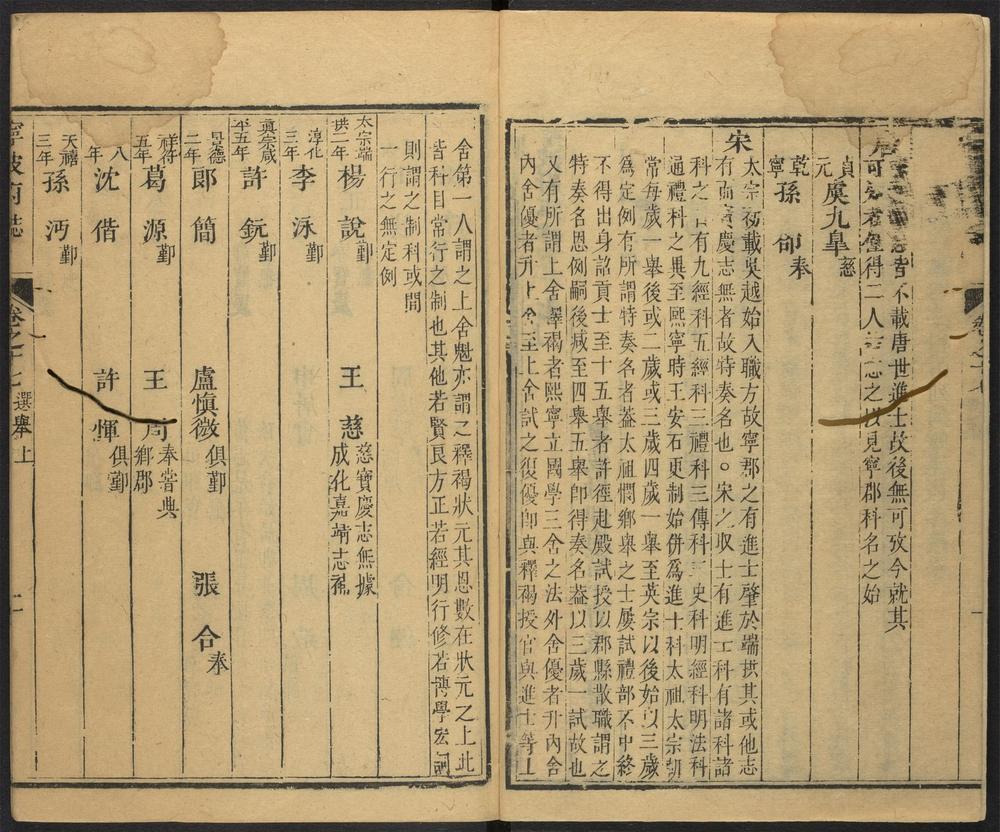 不載唐世進士故後無可攷今就其
可 者僅得二人 見寧郡科名之始
貞元 虞九臯慈
乾寧 孫郃奉
宋
太宗 載吳越始入職方故寧郡之有進士肇於端拱其或他志
有而寶慶志無者故特奏名也○宋之取士有進士科有諸科諸
科之目有九經科五經科三禮科三傳科三史科明經科明法科
通禮科之異至熙寧時王安石更制始併爲進士科太祖太宗朝
常每歲一舉後或二歲或三歲四歲一舉至英宗以後始以三歲
爲定例有所謂特奏名者葢太祖憫鄉舉之士屢試禮部不中終
不得出身詔貢士至十五舉者許徑赴殿試授以郡縣散職謂之
特奏名恩例嗣後減至四舉五舉卽得奏名葢以三歲一試故也
又有所謂上舍釋褐者熙寧立國學三舍之法外舍優者升內舍
內舍優者升上舍至上舍試之復優卽與釋褐授官與進士等上
舍第一人謂之上舍魁亦謂之釋褐狀元其恩數在狀元之上此
皆科目常行之制也其他若賢良方正若經明行修若博學宏詞
則謂之制科或間
一行之無定例
太宗端拱二年 楊說鄞 王慈慈寶慶志無據成化嘉靖志補
淳化三年 李泳鄞
眞宗咸平五年 許鈗鄞
景德二年 郎簡 盧愼微俱鄞 張合奉
祥符五年 葛源鄞 王周奉嘗典鄉郡
八年 沈偕 許惲俱鄞
天禧三年 孫沔鄞
寧波府誌 卷之十七 選舉上 二